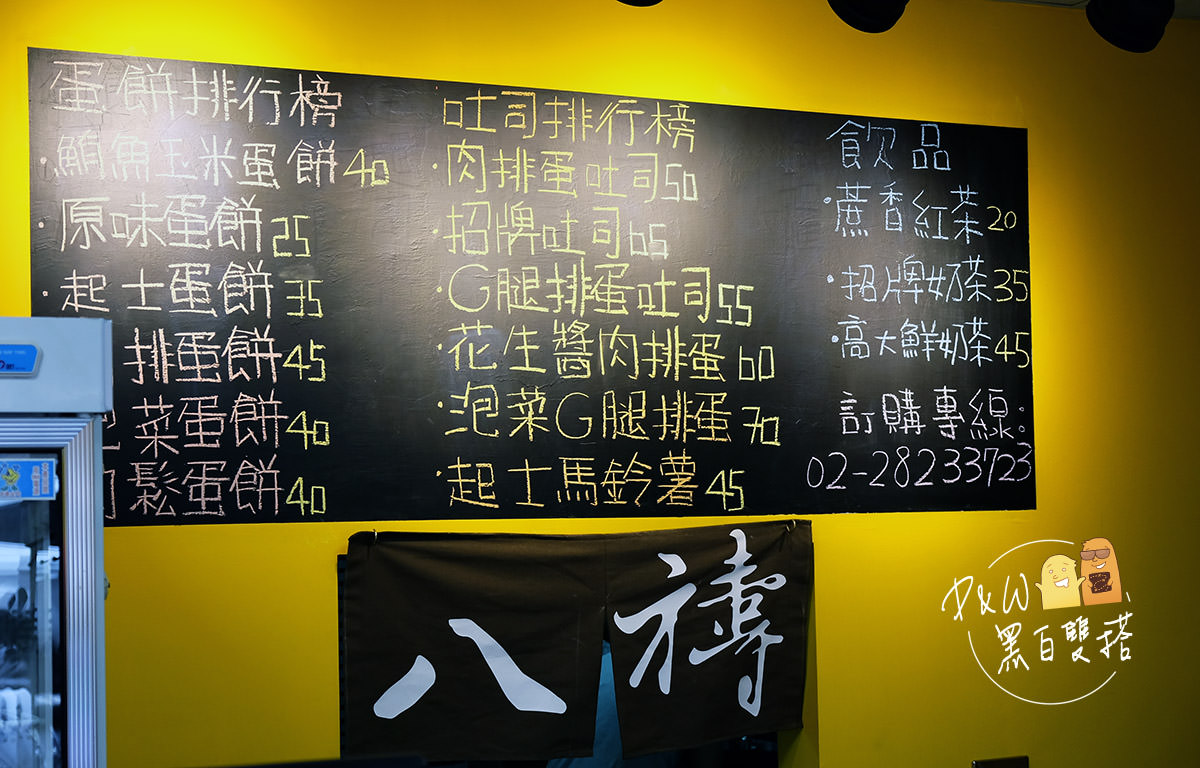 蛋餅排行榜
·鮪魚玉米蛋餅40
·原味蛋餅25
·起士蛋餅35
排蛋餅45
菜蛋餅40
鬆蛋餅40
吐司排行榜
·肉排蛋吐司50
·招牌吐司65
·G腿排蛋吐司55
·花生醬肉排蛋60
·泡菜G腿排蛋70
·起士馬鈴薯45
飲品
·蔗香紅茶20
·招牌奶茶35
·高大鮮奶茶45
訂購專線:
02-28233723
八禱
P&W
黑白雙搭